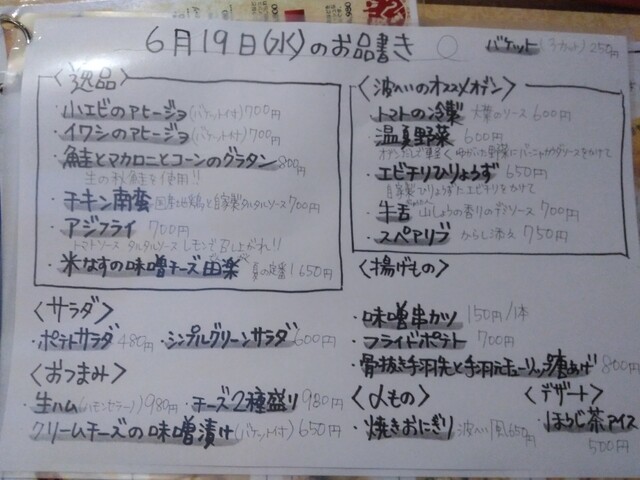 6月19日(水)のお品書き
バケット(3カット)250円
〈逸品〉
・小エビのアヒージョ(バケット付)700円
・イワシのアヒージョ(バケット付)700円
・鮭とマカロニとコーンのグラタン800円
生の秋鮭を使用!!
・チキン南蛮 国産地鶏と自家製タルタルソース700円
・アジフライ 700円
トマトソース タルタルソース レモンで召し上がれ!!
・米なすの味噌チーズ田楽 夏の定番!650円
〈サラダ〉
・ポテトサラダ 480円 ・シンプルグリーンサラダ600円
〈おつまみ〉
・生ハム(ハモンセラーノ)980円 ・チーズ2種盛り980円
クリームチーズの味噌漬け(バケット付)650円
〈波へいのオススメオデン〉
・トマトの冷製 大葉のソース 600円
・温夏野菜 600円
オデンだしで軽くゆがいた野菜にバーニャカウダソースをかけて
・エビチリひりょうず 650円
自家製ひりょうずにエビチリをかけて
・牛舌 山しょうの香りのデミソース 700円
・スペアリブ からし添え 750円
〈揚げもの〉
・味噌串カツ 150円/1本
・フライドポテト 700円
・骨抜き手羽先と手羽元ガーリック唐あげ 800円
〈〆もの〉
・焼きおにぎり 波へい風650円
〈デザート〉
・ほうじ茶アイス
500円